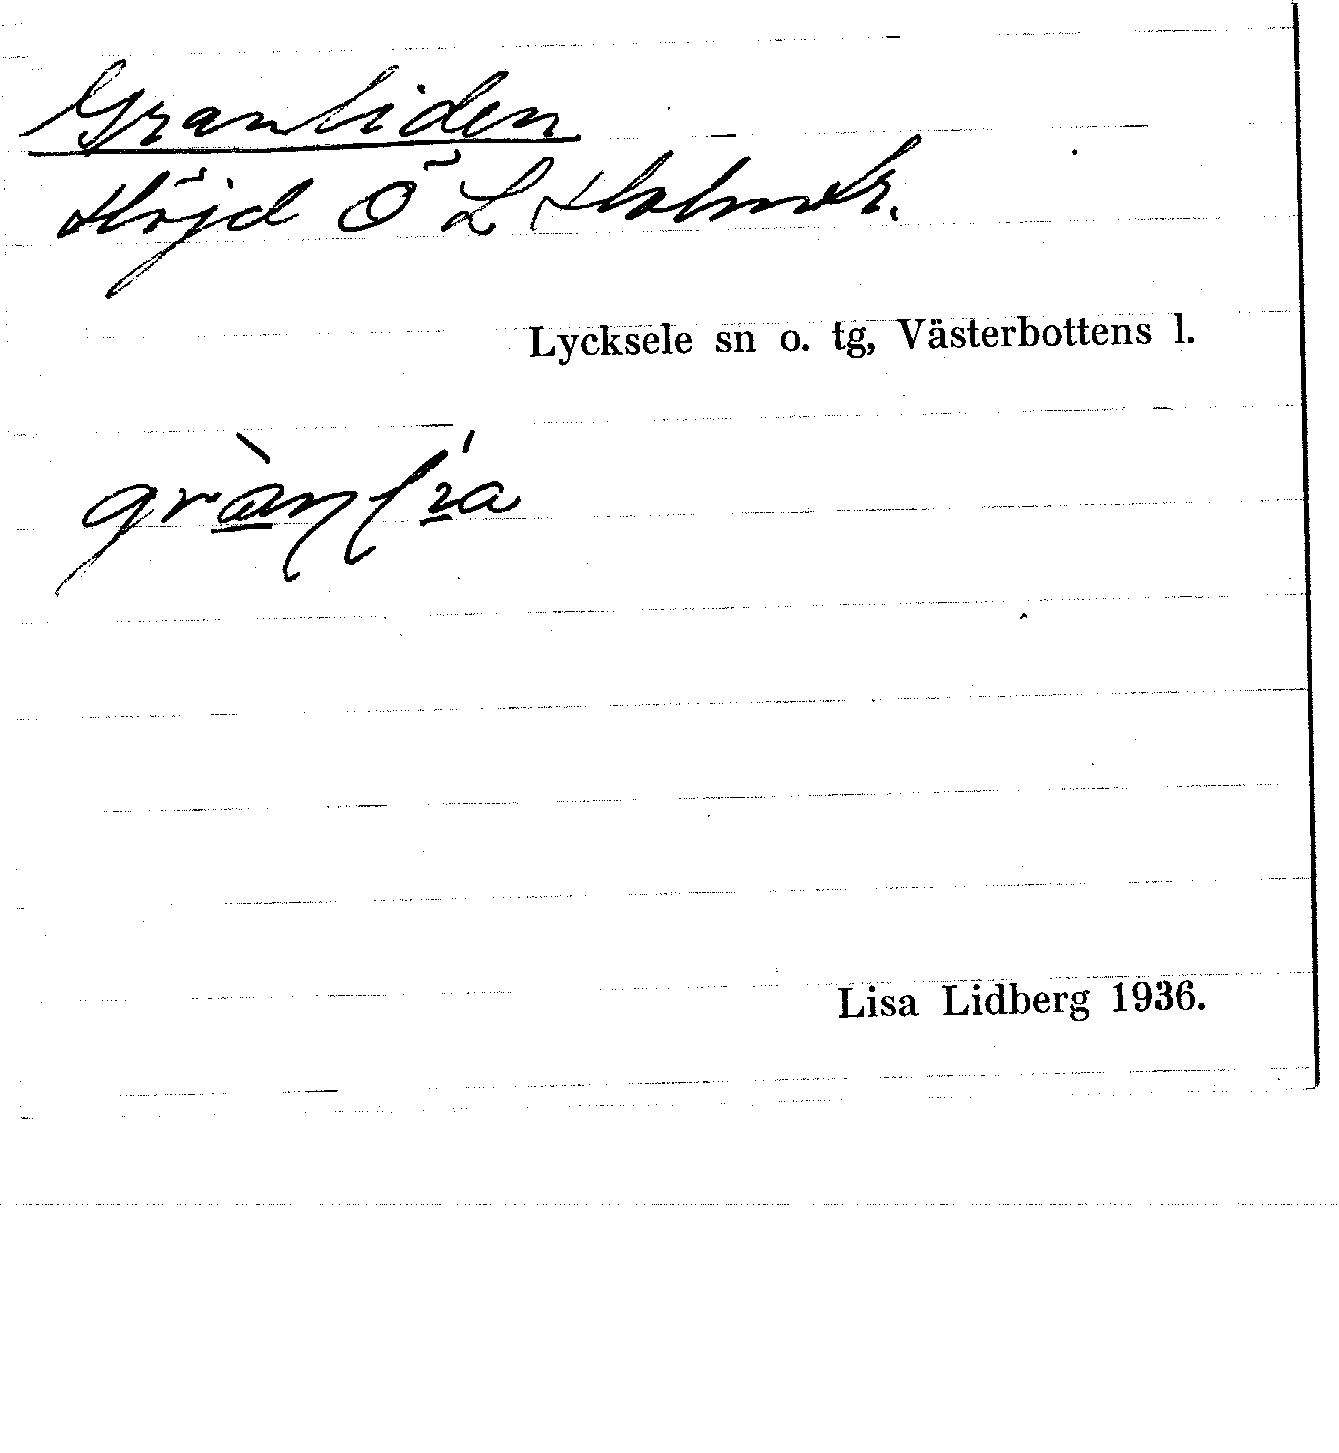 Granliden
Höjd Ö L Holmsk.
Lycksele sn o. tg, Västerbottens l.
Lisa Lidberg 1936.